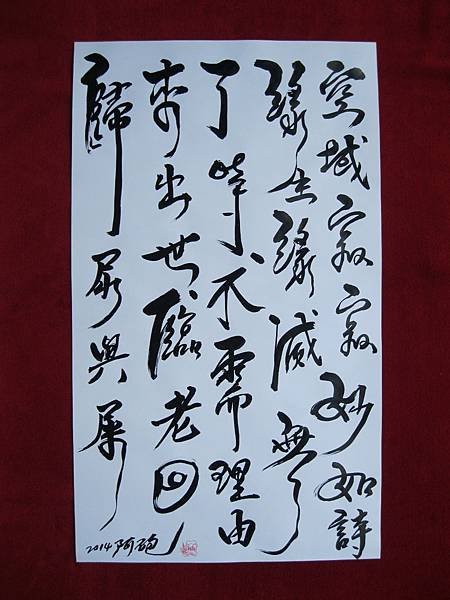 空域寂寂妙如詩
緣生緣滅無
了時不需理由
來出世臨老回
歸尿與屎
2014 阿